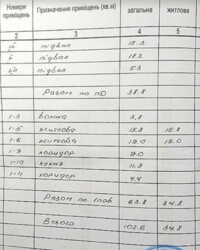 Номери приміщень Призначення приміщень (кв.м) загальна житлова
2 3 4 5
підвал 15.3
підвал 18.2
підвал 5.3
Разом по пд 38.8
1-3 ванна 3,8
1-5 житлова 15.8 15.8
1-6 житлова 19.0 19.0
1-9 коридор 9.0
1-10 кухня 11.8
1-11 коридор 4.4
Разом по 1 пов 63.8 34.8
Всього 102.6 34.8